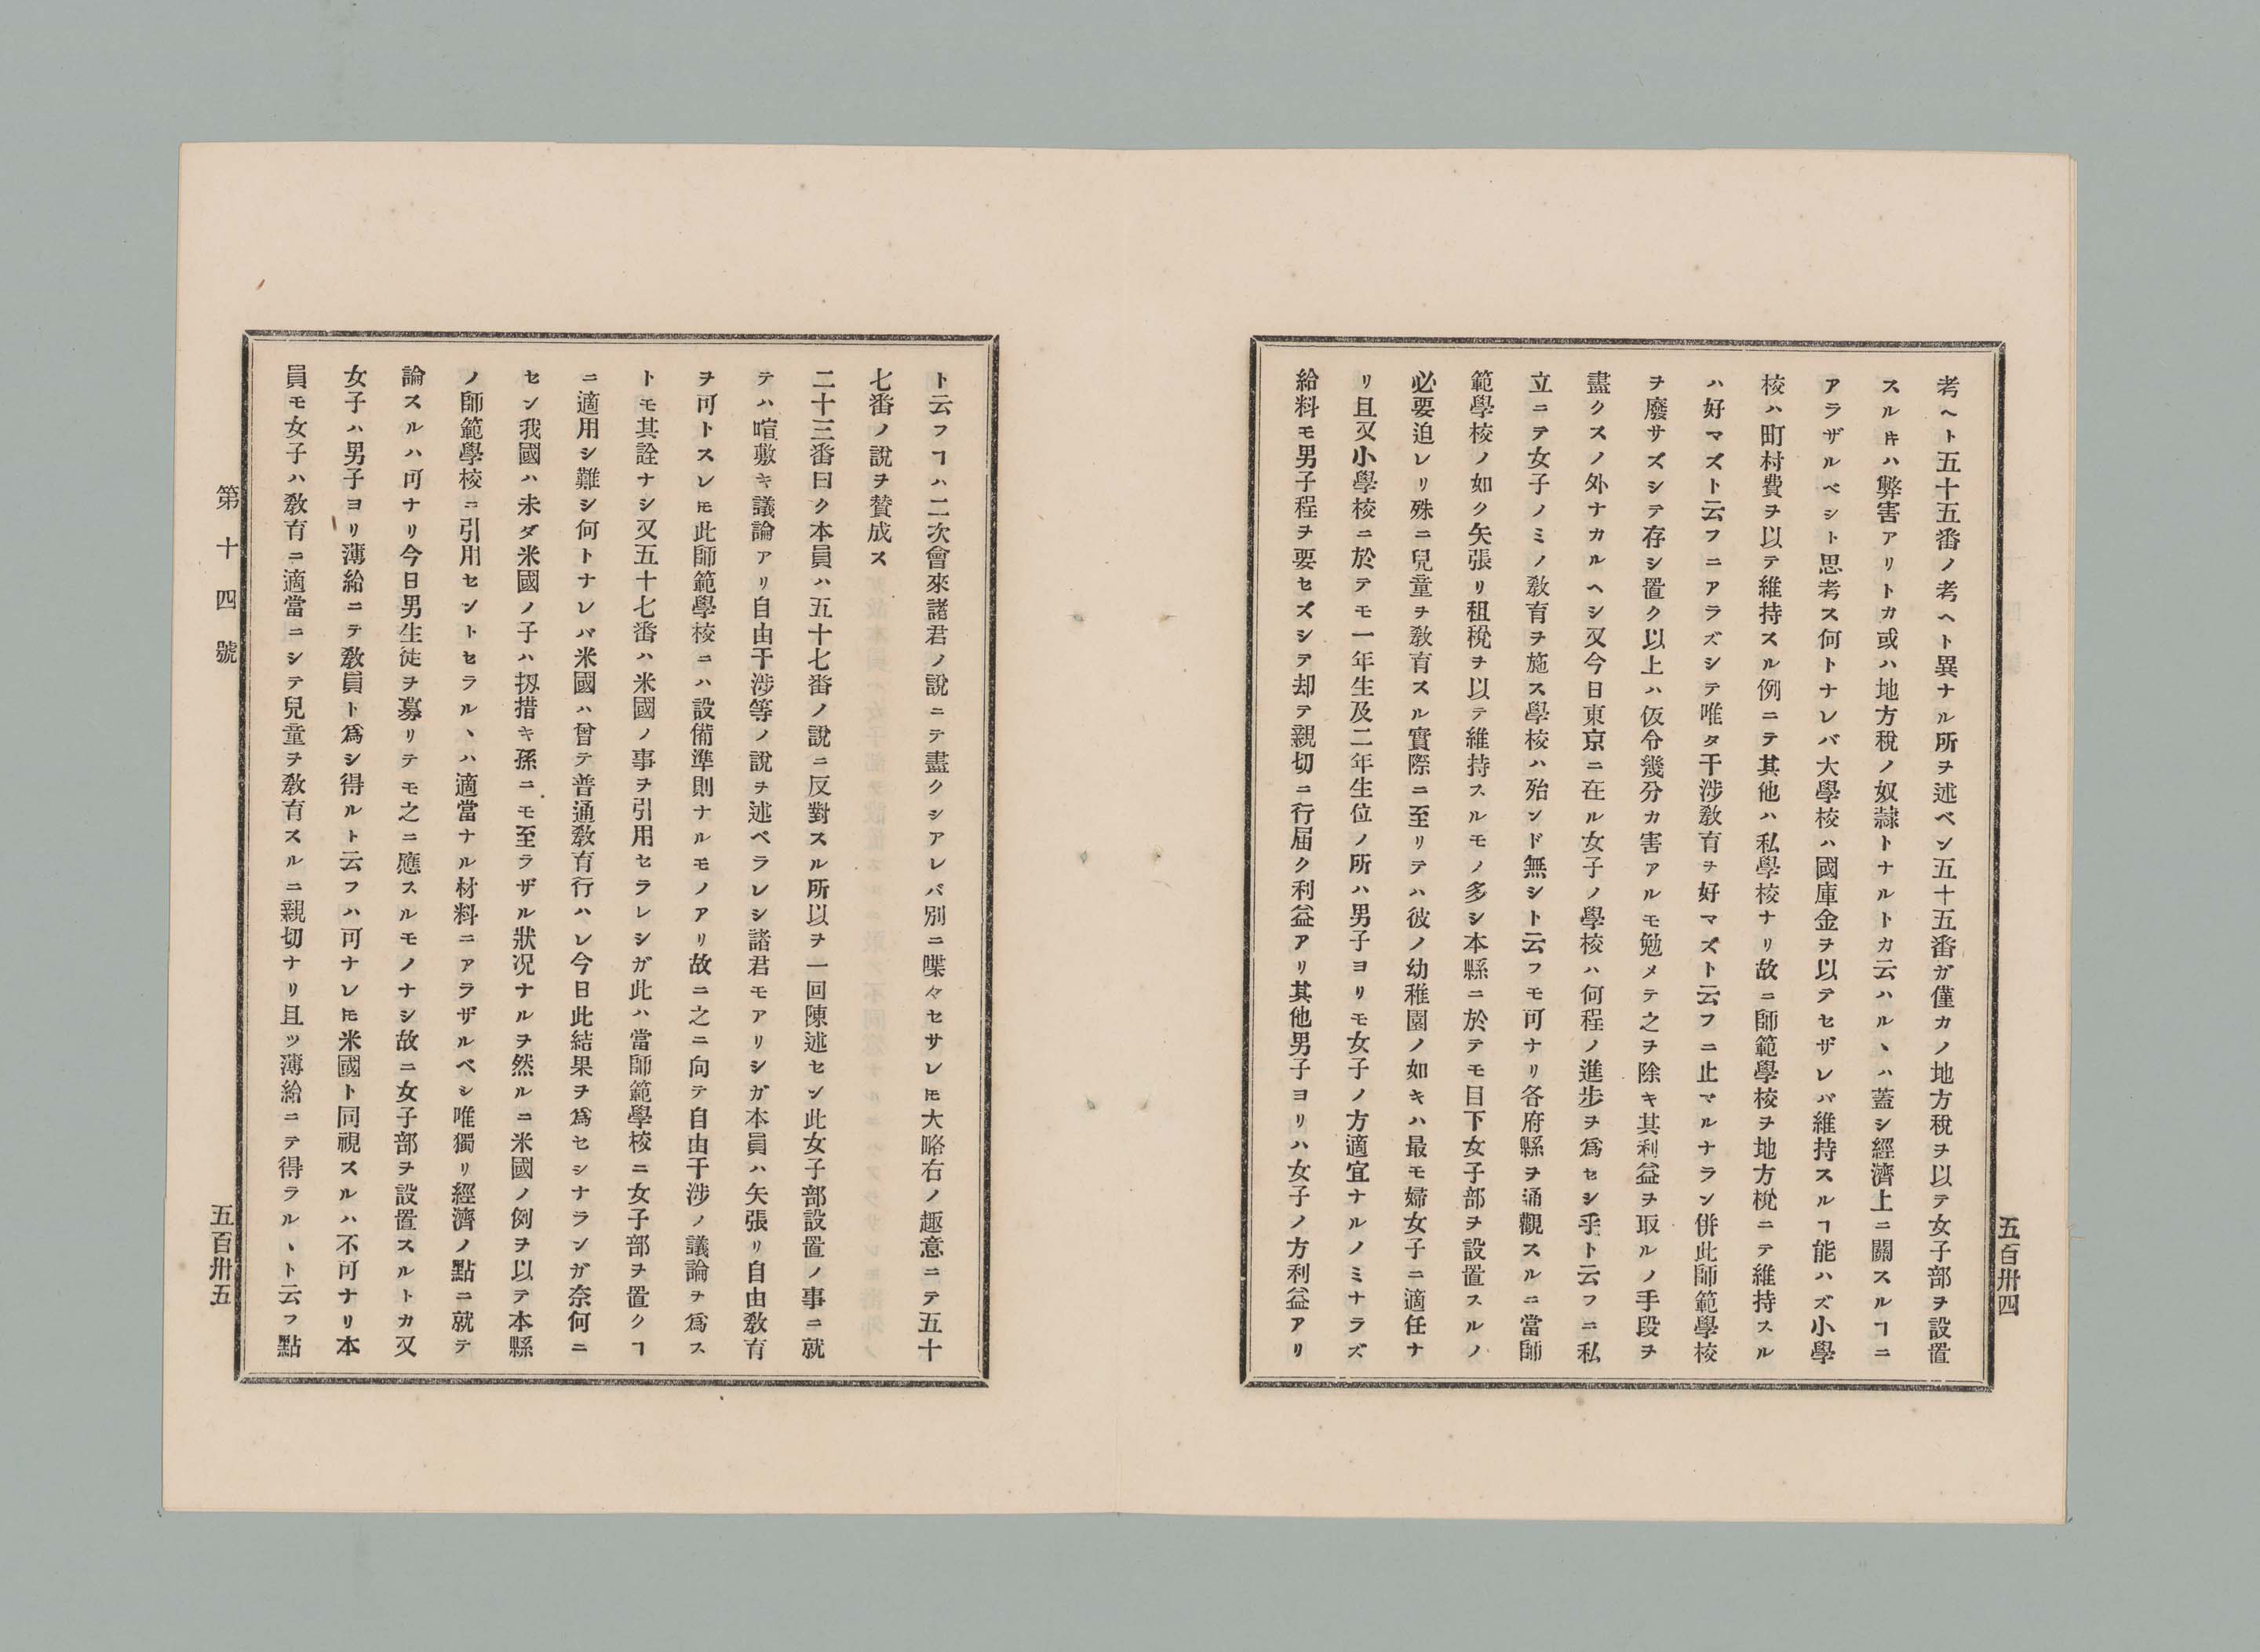 考ヘト五十五番ノ考ヘト異ナル所ヲ述ベン五十五番ガ僅カノ地方稅ヲ以テ女子部ヲ設置
スルヿハ弊害アリトカ或ハ地方稅ノ奴隷トナルトカ云ハルヽハ蓋シ經濟上ニ關スルヿニ
アラザルベシト思考ス何トナレバ大學校ハ國庫金ヲ以テセザレバ維持スルヿ能ハズ小學
校ハ町村費ヲ以テ維持スル例ニテ其他ハ私學校ナリ故ニ師範學校ヲ地方稅ニテ維持スル
ハ好マズト云フニアラズシテ唯タ干涉敎育ヲ好マズト云フニ止マルナラン併此師範學校
ヲ廢サズシテ存シ置ク以上ハ仮令幾分カ害アルモ勉メテ之ヲ除キ其利益ヲ取ルノ手段ヲ
盡クスノ外ナカルヘシ又今日東京ニ在ル女子ノ學校ハ何程ノ進步ヲ爲セシ乎ト云フニ私
立ニテ女子ノミノ敎育ヲ施ス學校ハ殆ンド無シト云フモ可ナリ各府縣ヲ通觀スルニ當師
範學校ノ如ク矢張リ租稅ヲ以テ維持スルモノ多シ本縣ニ於テモ目下女子部ヲ設置スルノ
必要迫レリ殊ニ兒童ヲ敎育スル實際ニ至リテハ彼ノ幼稚園ノ如キハ最モ婦女子ニ適任ナ
リ且又小學校ニ於テモ一年生及二年生位ノ所ハ男子ヨリモ女子ノ方適宜ナルノミナラズ
給料モ男子程ヲ要セズシテ却テ親切ニ行届ク利益アリ其他男子ヨリハ女子ノ方利益アリ
五百卅四
ト云フヿハ二次會來諸君ノ說ニテ盡クシアレバ別ニ喋々セサレ𪜈大略右ノ趣意ニテ五十
七番ノ說ヲ賛成ス
二十三番曰ク本員ハ五十七番ノ說ニ反對スル所以ヲ一回陳述セン此女子部設置ノ事ニ就
テハ喧敷キ議論アリ自由干涉等ノ說ヲ述ベラレシ諸君モアリシガ本員ハ矢張リ自由敎育
ヲ可トスレ𪜈此師範學校ニハ設備準則ナルモノアリ故ニ之ニ向テ自由干涉ノ議論ヲ爲ス
トモ其詮ナシ又五十七番ハ米國ノ事ヲ引用セラレシガ此ハ當師範學校ニ女子部ヲ置クヿ
ニ適用シ難シ何トナレバ米國ハ曾テ普通敎育行ハレ今日此結果ヲ爲セシナランガ奈何ニ
セン我國ハ未ダ米國ノ子ハ扨措キ孫ニモ至ラザル狀况ナルヲ然ルニ米國ノ例ヲ以テ本縣
ノ師範學校ニ引用セントセラルヽハ適當ナル材料ニアラザルベシ唯獨リ經濟ノ點ニ就テ
論スルハ可ナリ今日男生徒ヲ募リテモ之ニ應スルモノナシ故ニ女子部ヲ設置スルトカ又
女子ハ男子ヨリ薄給ニテ敎員ト爲シ得ルト云フハ可ナレ𪜈米國ト同視スルハ不可ナリ本
員モ女子ハ敎育ニ適當ニシテ兒童ヲ敎育スルニ親切ナリ且ツ薄給ニテ得ラルヽト云フ點
第十四號
五百卅五